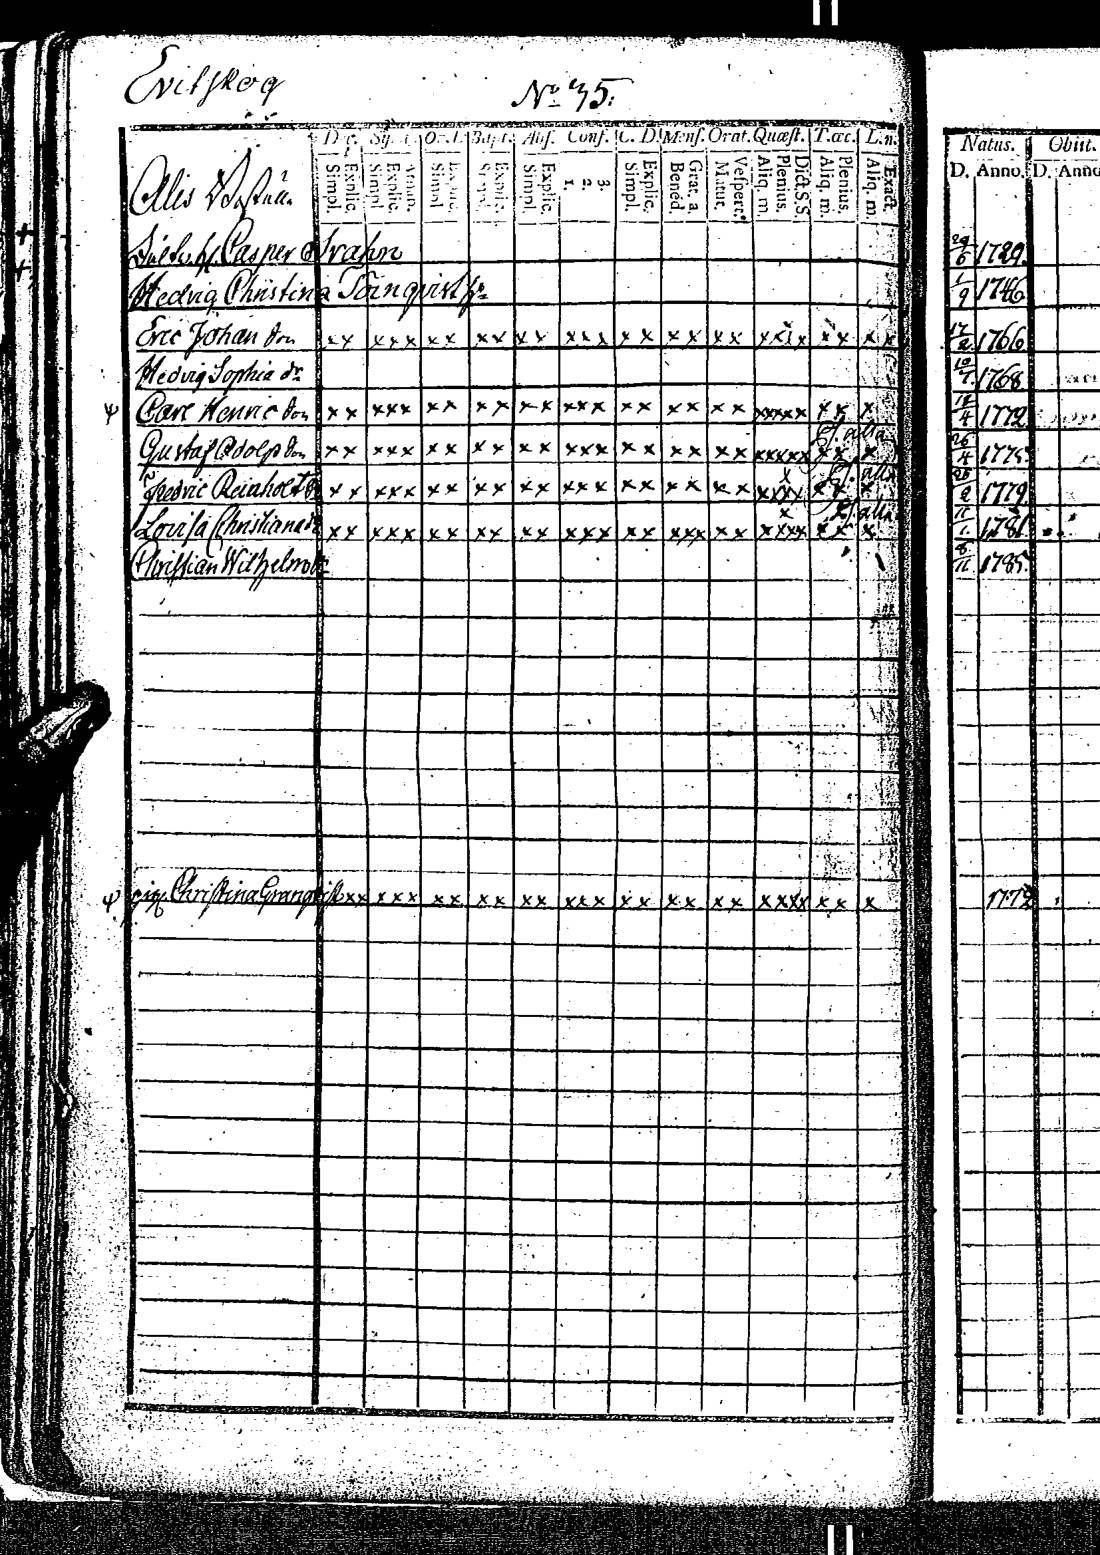 Evitskog
No 35.
Dec. Sym. Or. D. Bapt. Abs. Conf. C. D. Mens. Orat. Quæst. Tæc. L. n. Natus. Obiit.
Explic. Simpl. Athan. Explic. Simpl. Explic. Simpl. Explic. Simpl. Explic. Simpl. 3. 2. 1. Explic. Simpl. Grat. a. Bened. Vespert. Matut. Dict. S. S. Plenius. Aliq. m. Plenius. Aliq. m. Exact. Aliq. m. D. Anno. D. Anno
Alis
Casper Svahn 29/6 1729.
Hedvig Christina Törnqvist hu 1/9 1746
Eric Johan son xx xxx xx xx xx xxx xx xx xx xxix xx xx 17/2 1766
Hedvig Sophia dr 10/7 1768
ψ Carl Henric son xx xxx xx xx xx xxx xx xx xx xxxxx xx x 12/4 1772
Gustaf Adolph son xx xxx xx xx xx xxx xx xx xx xxxxx xx x 26/4 1775
Fredric Reinholt xx xxx xx xx xx xxx xx xx xx xxxx xx x 25/2 1779
Lovisa Christiana dr xx xxx xx xx xx xxx xx xxx xx xxxx xx x 11/1 1781
Christian Wilhelm 8/11 1785.
ψ pig. Christina Granqvist xx xxx xx xx xx xxx xx xx xx xxxx xx x 1772